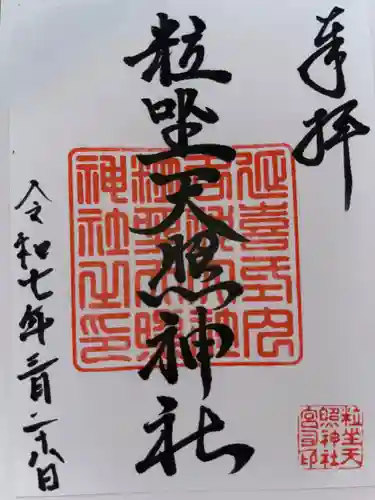 奉拝
粒坐天照神社
令和七年三月二十八日
延喜式内
神社之印
粒坐天
照神社
宮司印